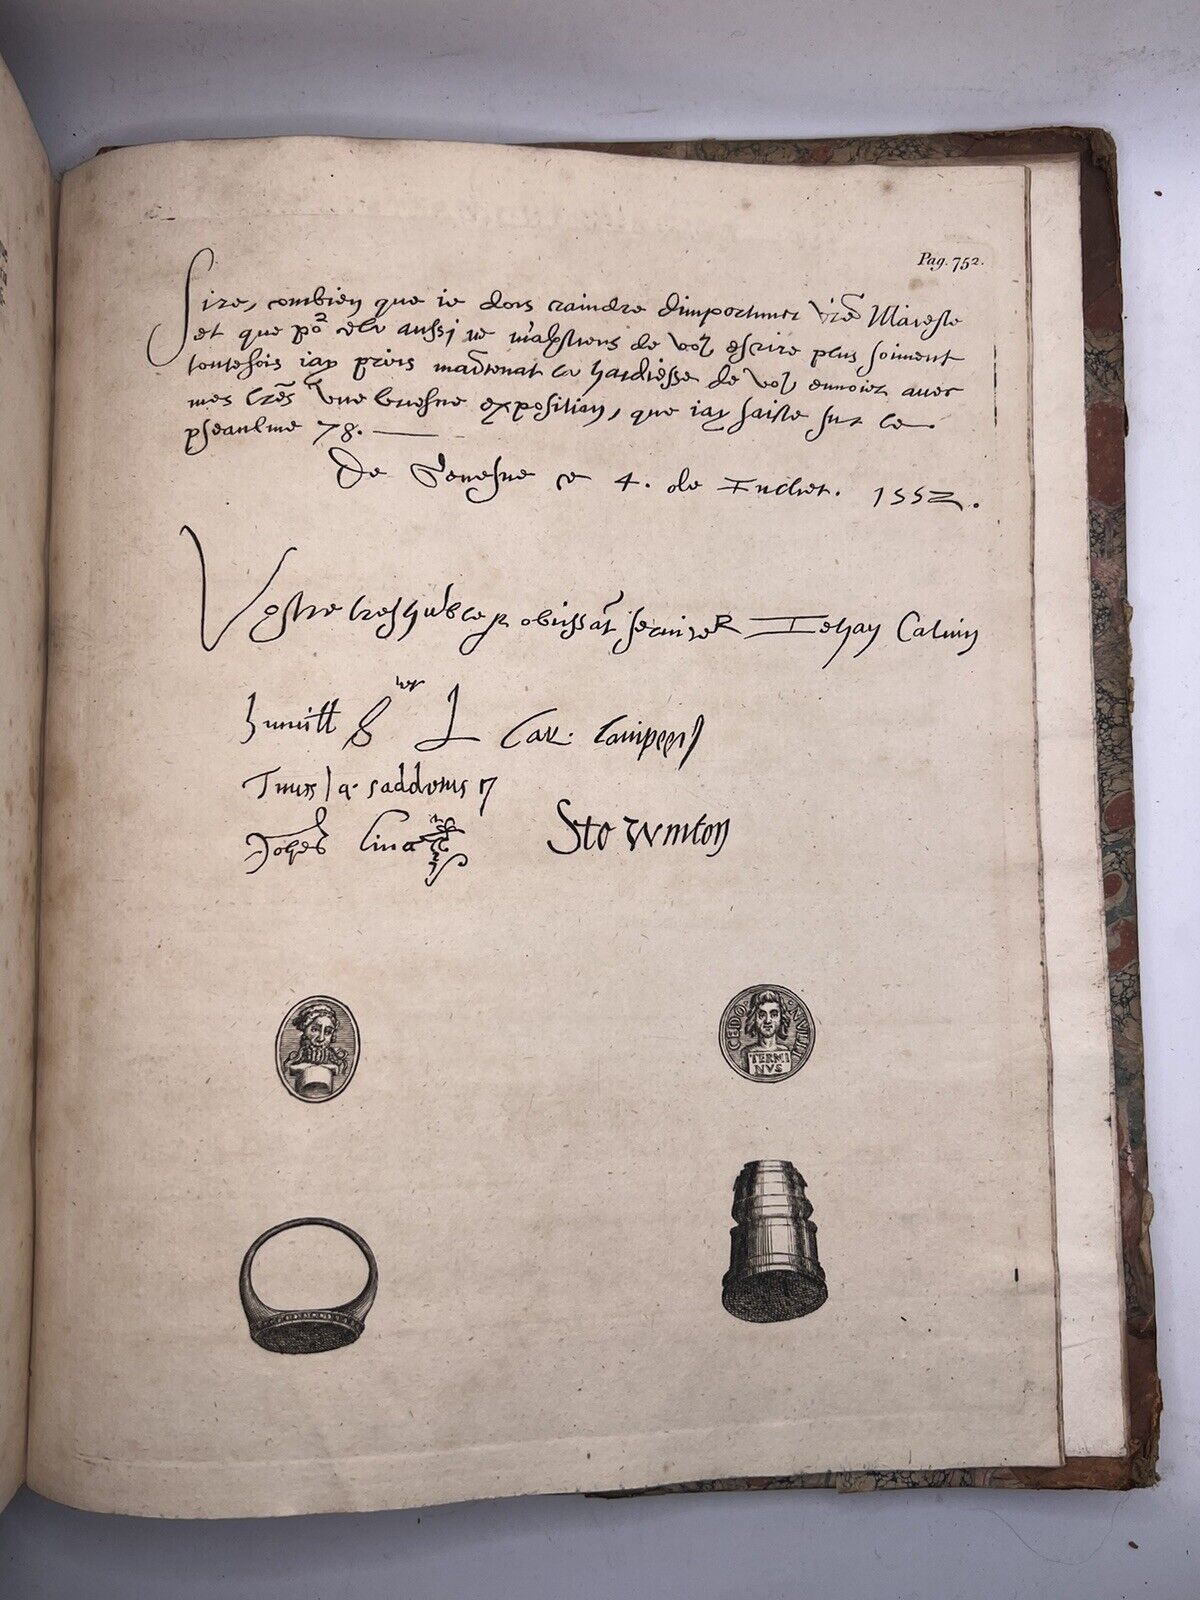 Pag. 752.
Sire, combien que ie dois craindre dimportuner vr̃e Maieste
et que po² cela aussi ie m'abstiens de voz escrire plus souuent
toutesfois iay prins maĩtenãt la hardiesse de voz enuoier auec
mes lr̃es vne briefue exposition, que iay faicte sur le
pseaulme 78.
De Geneue ce 4. de Iuillet. 1552.
Vostre tres hũble et obeissãt seruiteR Iehan Caluin
humill s L Car. Campegs
Tuus Ia. Sadoletus
Sto Winton
CEDO NVLLI
TERMI
NVS